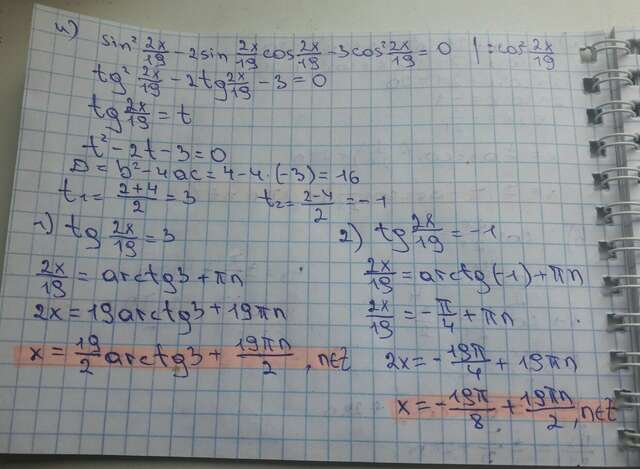 и)
sin² 2x/19 - 2sin 2x/19 cos 2x/19 - 3cos² 2x/19 = 0 | : cos² 2x/19
tg² 2x/19 - 2tg 2x/19 - 3 = 0
tg 2x/19 = t
t² - 2t - 3 = 0
D = b² - 4ac = 4 - 4·(-3) = 16
t₁ = (2+4)/2 = 3 t₂ = (2-4)/2 = -1
1) tg 2x/19 = 3
2x/19 = arctg3 + πn
2x = 19arctg3 + 19πn
x = 19/2 arctg3 + 19πn/2, n∈Z
2) tg 2x/19 = -1
2x/19 = arctg(-1) + πn
2x/19 = -π/4 + πn
2x = -19π/4 + 19πn
x = -19π/8 + 19πn/2, n∈Z